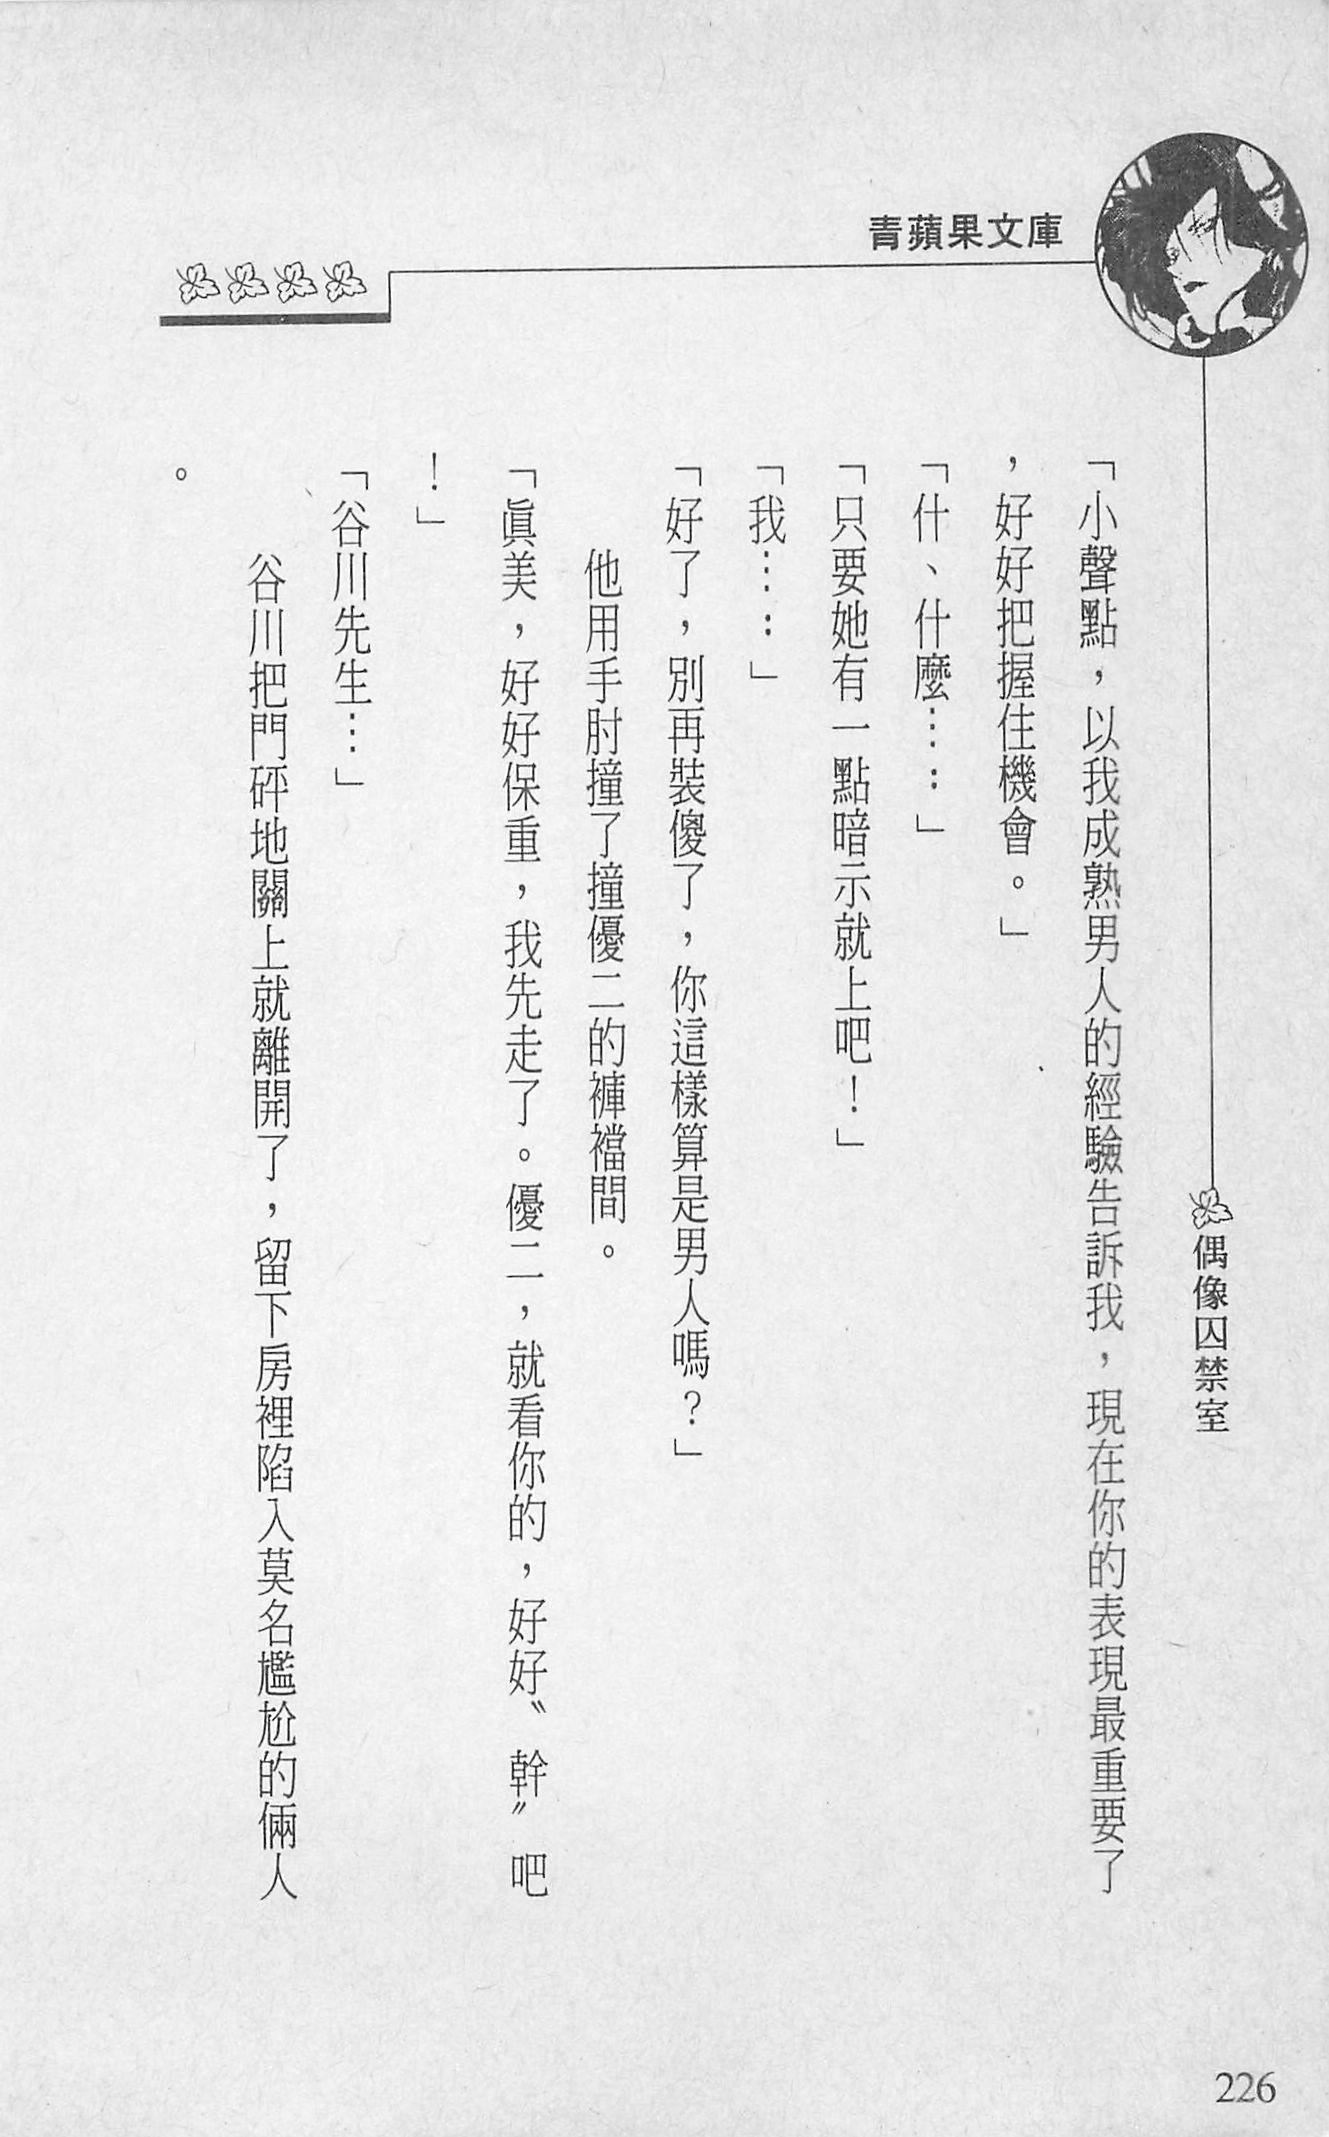 青蘋果文庫
偶像囚禁室
「小聲點，以我成熟男人的經驗告訴我，現在你的表現最重要了
，好好把握住機會。」
「什、什麼‥‥」
「只要她有一點暗示就上吧！」
「我‥‥」
「好了，別再裝傻了，你這樣算是男人嗎？」
他用手肘撞了撞優二的褲襠間。
「眞美，好好保重，我先走了。優二，就看你的，好好〝幹〞吧
！」
「谷川先生…」
谷川把門砰地關上就離開了，留下房裡陷入莫名尷尬的倆人
。
226